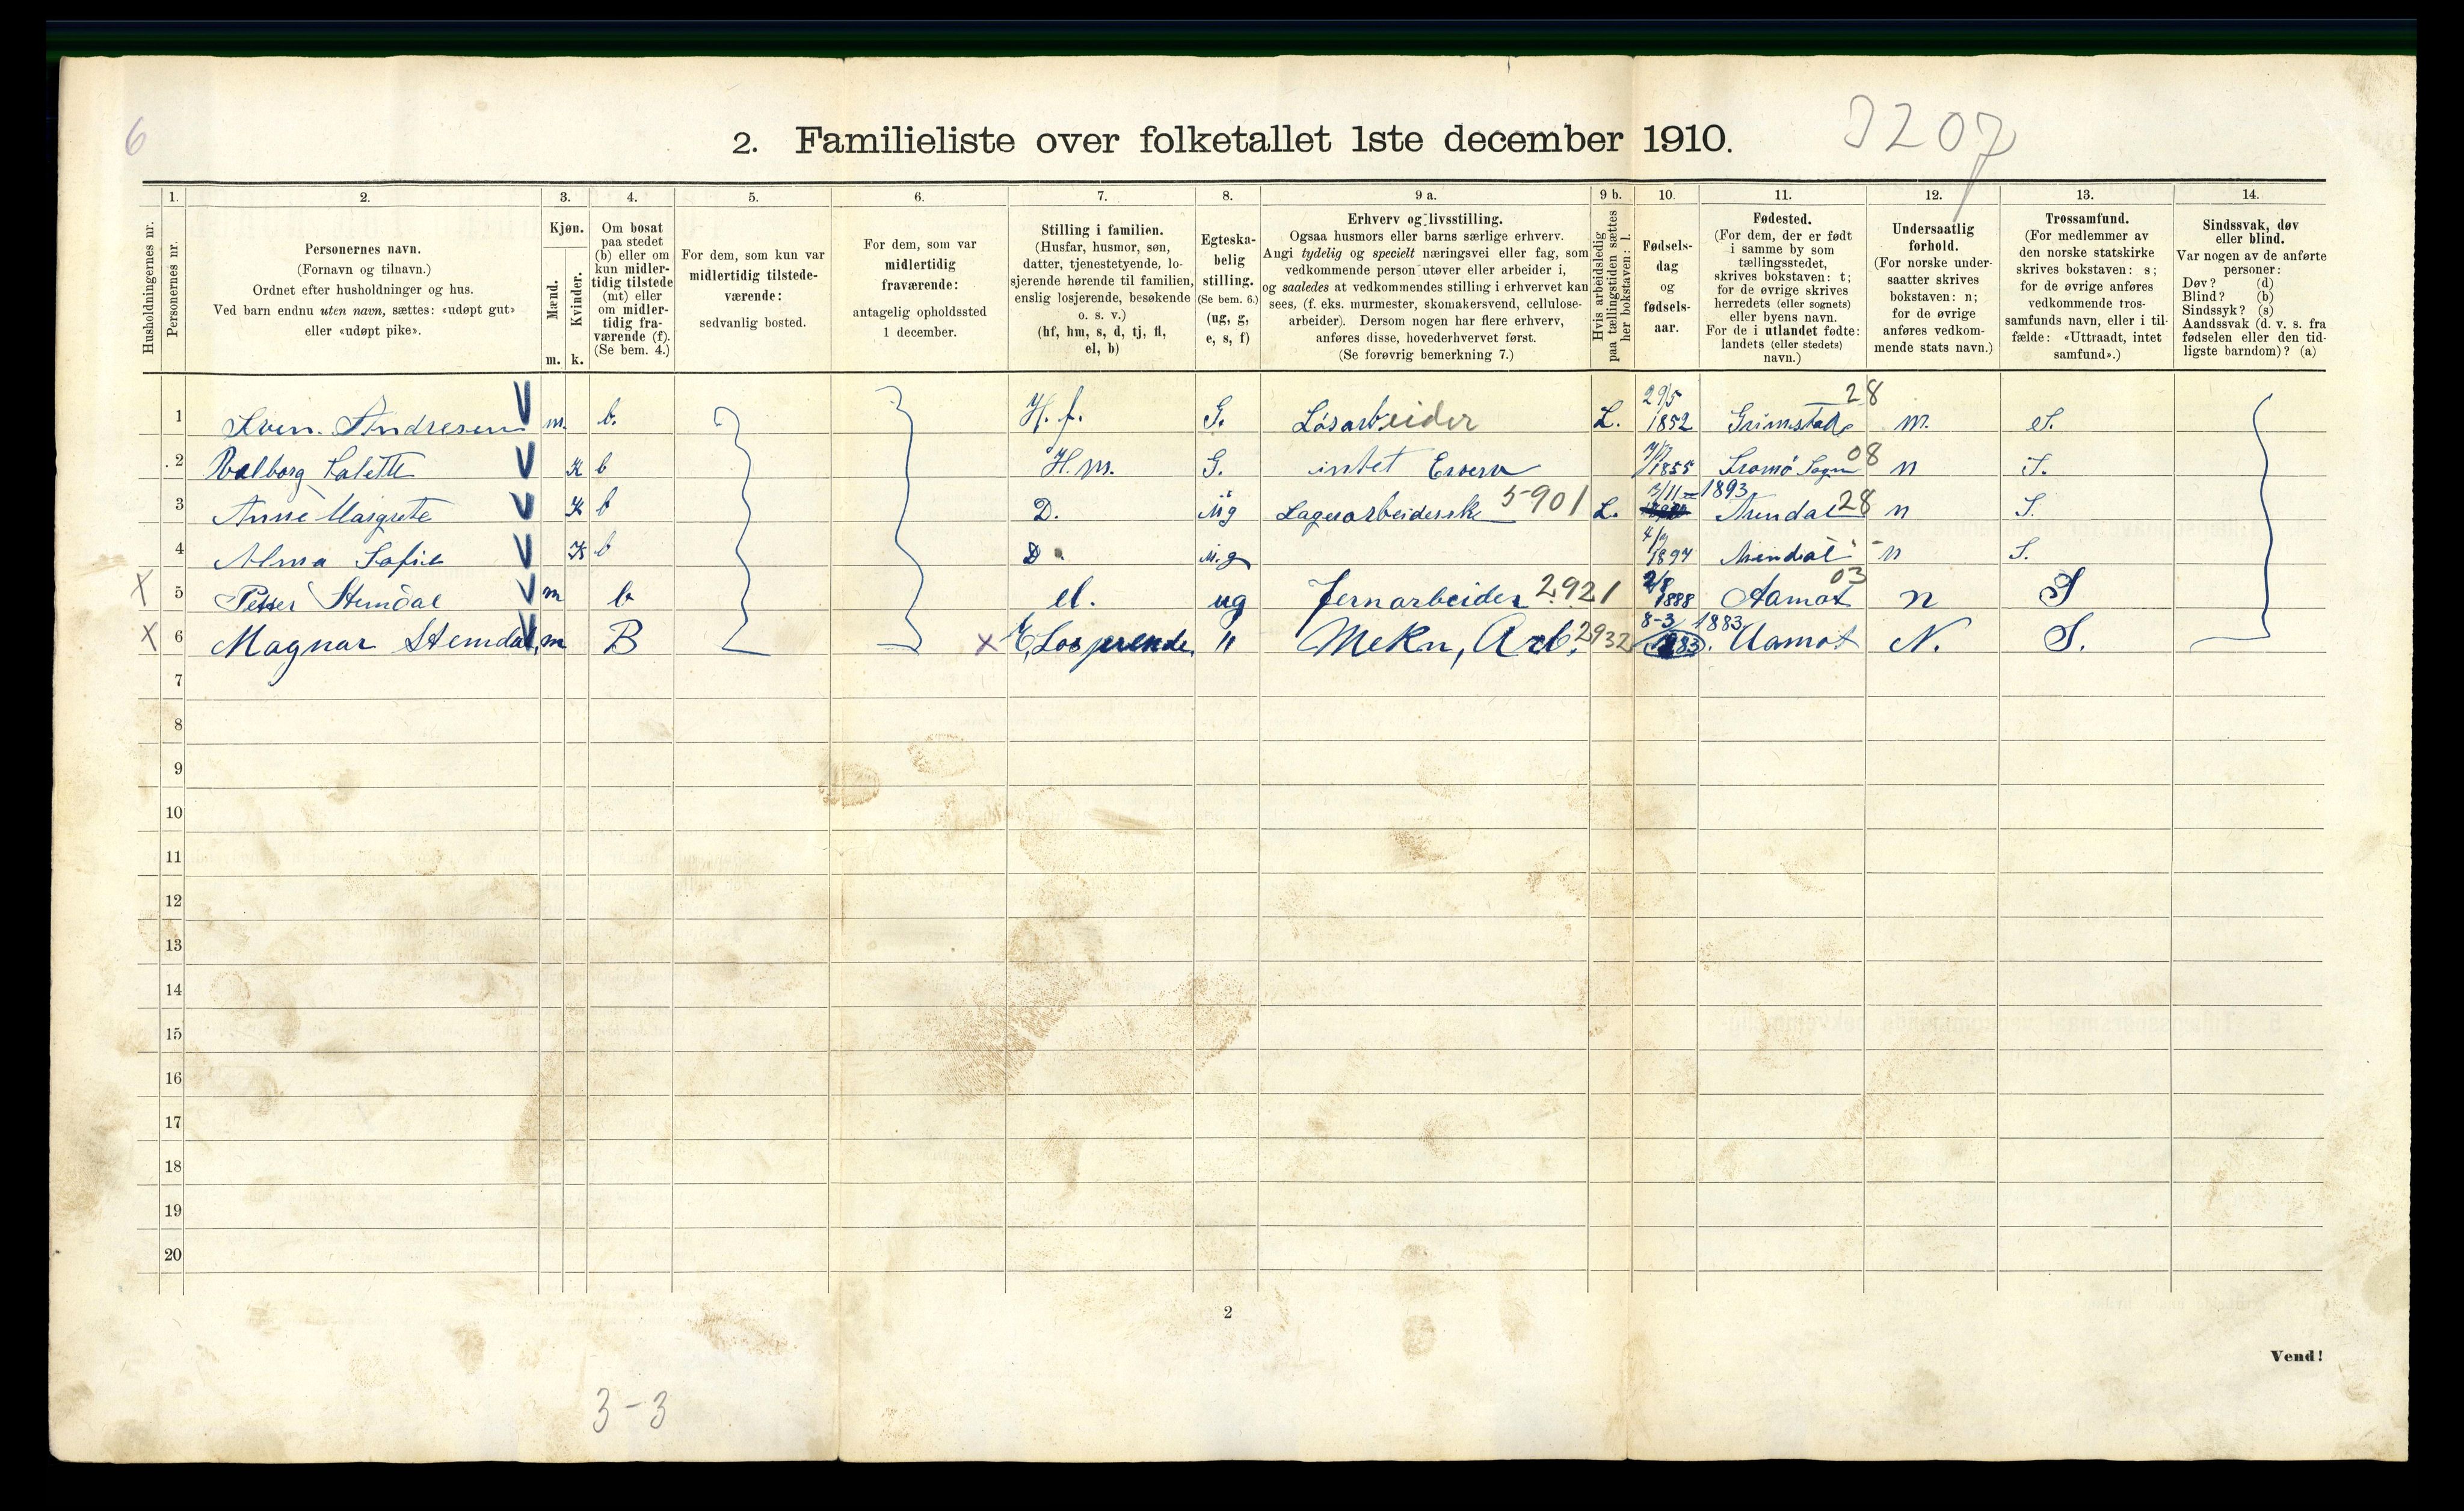 6
2. Familieliste over folketallet 1ste december 1910.
3207
Husholdningernes nr.
1.
Personernes nr.
2.
Personernes navn.
(Fornavn og tilnavn.)
Ordnet efter husholdninger og hus.
Ved barn endnu uten navn, sættes: «udøpt gut»
eller «udøpt pike».
3.
Kjøn.
Mænd.
m.
Kvinder.
k.
4.
Om bosat
paa stedet
(b) eller om
kun midler-
tidig tilstede
(mt) eller
om midler-
tidig fra-
værende (f).
(Se bem. 4.)
5.
For dem, som kun var
midlertidig tilstede-
værende:
sedvanlig bosted.
6.
For dem, som var
midlertidig
fraværende:
antagelig opholdssted
1 december.
7.
Stilling i familien.
(Husfar, husmor, søn,
datter, tjenestetyende, lo-
sjerende hørende til familien,
enslig losjerende, besøkende
o. s. v.)
(hf, hm, s, d, tj, fl,
el, b)
8.
Egteska-
belig
stilling.
(Se bem. 6.)
(ug, g,
e, s, f)
9 a.
Erhverv og livsstilling.
Ogsaa husmors eller barns særlige erhverv.
Angi tydelig og specielt næringsvei eller fag, som
vedkommende person utøver eller arbeider i,
og saaledes at vedkommendes stilling i erhvervet kan
sees, (f. eks. murmester, skomakersvend, cellulose-
arbeider). Dersom nogen har flere erhverv,
anføres disse, hovederhvervet først.
(Se forøvrig bemerkning 7.)
9 b.
Hvis arbeidsledig
paa tællingstiden sættes
her bokstaven: l.
10.
Fødsels-
dag
og
fødsels-
aar.
11.
Fødested.
(For dem, der er født
i samme by som
tællingsstedet,
skrives bokstaven: t;
for de øvrige skrives
herredets (eller sognets)
eller byens navn.
For de i utlandet fødte:
landets (eller stedets)
navn.)
12.
Undersaatlig
forhold.
(For norske under-
saatter skrives
bokstaven: n;
for de øvrige
anføres vedkom-
mende stats navn.)
13.
Trossamfund.
(For medlemmer av
den norske statskirke
skrives bokstaven: s;
for de øvrige anføres
vedkommende tros-
samfunds navn, eller i til-
fælde: «Uttraadt, intet
samfund».)
14.
Sindssvak, døv
eller blind.
Var nogen av de anførte
personer:
Døv? (d)
Blind? (b)
Sindssyk? (s)
Aandssvak (d. v. s. fra
fødselen eller den tid-
ligste barndom)? (a)
1 Sven. Andresen V m. b. H. f. G. Løsarbeider L. 29/5 1852 Grimstad 28 S.
2 Valborg Salette V K b H. m. G. intet Erverv 1855 Tromø Sogn 08 n S.
3 Anne Margrete V K b D. ug Lagerarbeiderske 5901 L. 3/11 = 1893 Arendal 28 n S.
4 Alma Sofie V K b D. u.g 1897 Arendal n S.
X 5 Petter Stemdal V m b el. ug Jernarbeider 2921 2/8 1888 Aamot 03 n S
X 6 Magnar Stemdal, V m B X E, Losjerende, " Mekn, Arb. 2932 8-3 1883 1883. Aamot N. S.
7
8
9
10
11
12
13
14
15
16
17
18
19
20
2
Vend!
3-3